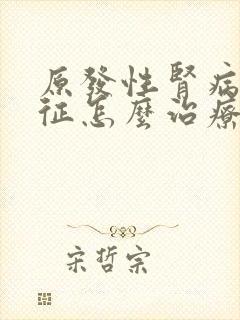 原發性腎病
征怎麼治療
宋哲宗